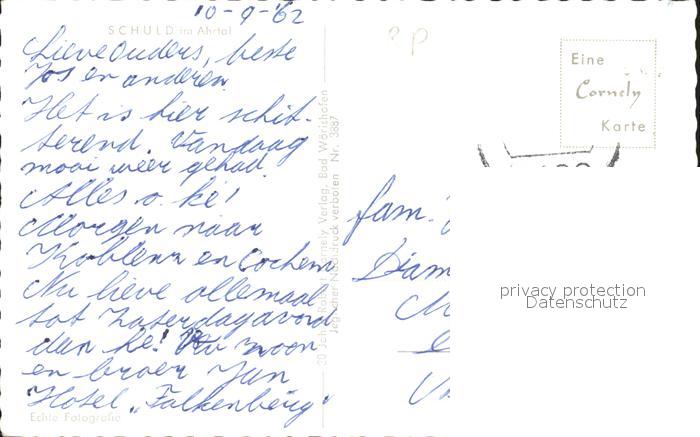 10-9-'62
SCHULD im Ahrtal
Lieve Ouders, beste
Jos en anderen
Het is hier schit-
terend. Vandaag
mooi weer gehad.
Alles o. ké!
Morgen naar
Koblenz en Cochem
Nu lieve allemaal
tot Zaterdagavond
dan hé! Uw zoon
en broer Jan
Hotel „Falkenberg"
Echte Fotografie
Cornely Verlag, Bad Wörishofen
Nachdruck verboten Nr. 3887
Eine
Cornely
Karte
fam.
privacy protection
Datenschutz